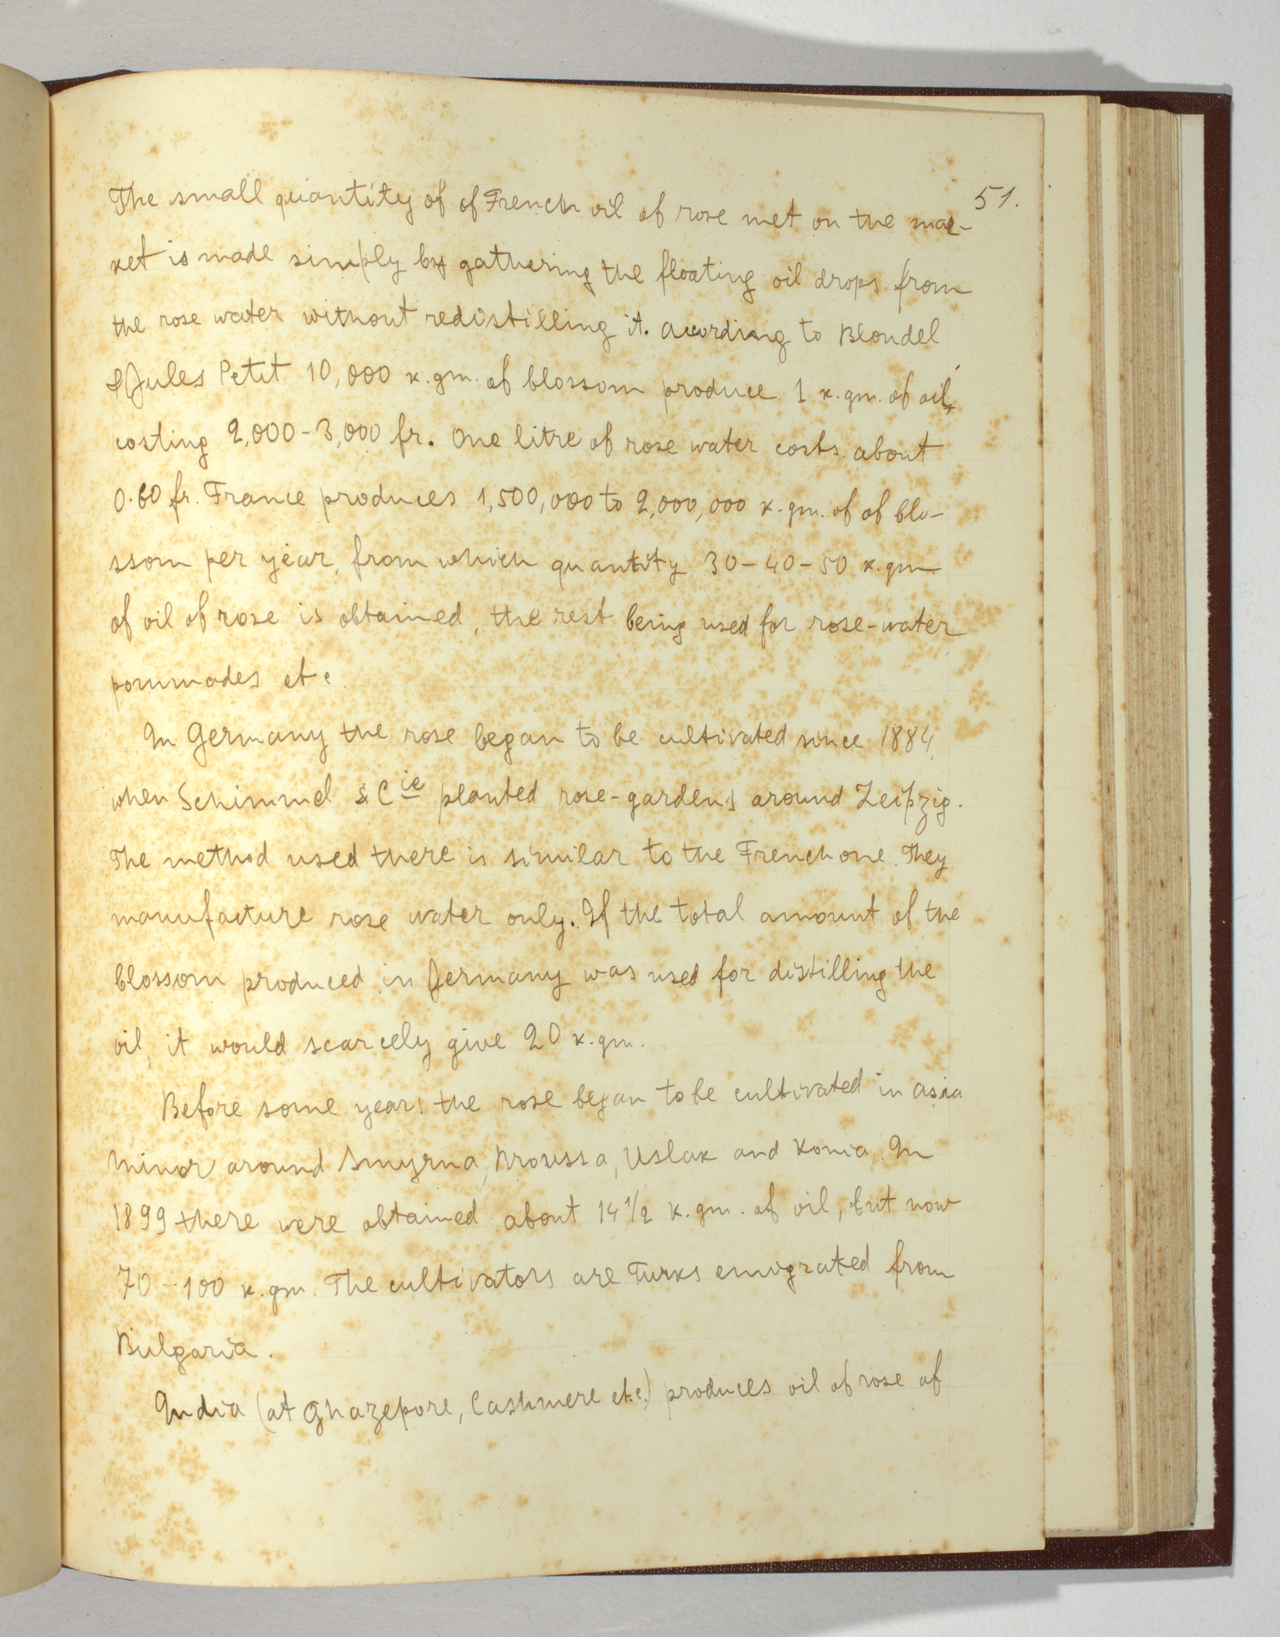 51.
The small quantity of of French oil of rose met on the mar-
ket is made simply by gathering the floating oil drops from
the rose water without redistilling it. According to Blondel
& Jules Petit 10,000 k.gm. of blossom produce 1 k.gm. of oil,
costing 2,000-3,000 fr. One litre of rose water costs about
0.60 fr. France produces 1,500,000 to 2,000,000 k.gm. of of blo-
ssom per year, from which quantity 30-40-50 k.gm.
of oil of rose is obtained, the rest being used for rose-water
pommades etc
In Germany the rose began to be cultivated since 1884,
when Schimmel & Cie planted rose-gardens around Leipzig.
The method used there is similar to the French one. They
manufacture rose water only. If the total amount of the
blossom produced in Germany was used for distilling the
oil, it would scarcely give 20 k.gm.
Before some years the rose began to be cultivated in Asia
Minor around Smyrna, Broussa, Uslak and Konia. In
1899 there were obtained about 14 1/2 k.gm. of oil, but now
70-100 k.gm. The cultivators are Turks emigrated from
Bulgaria.
India (at Ghazepore, Cashmere etc.) produces oil of rose of